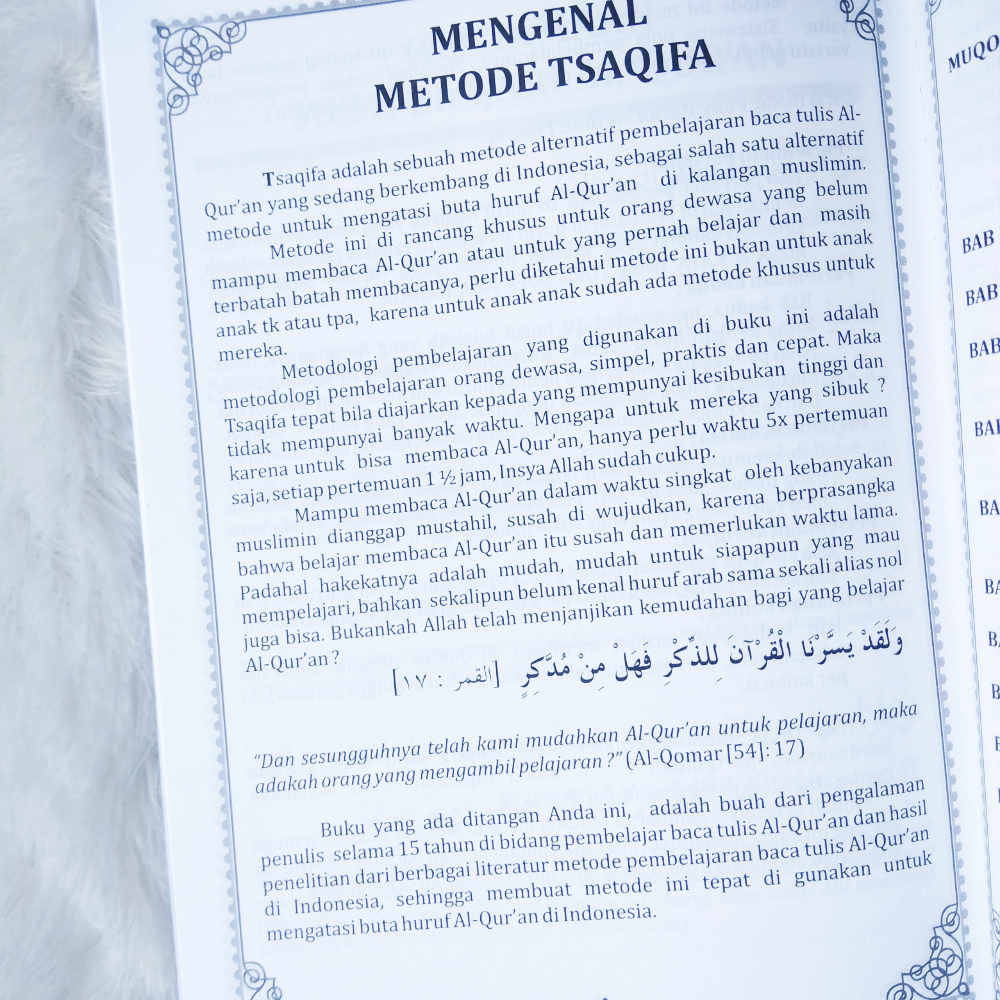 MENGENAL
METODE TSAQIFA
Tsaqifa adalah sebuah metode alternatif pembelajaran baca tulis Al-
Qur'an yang sedang berkembang di Indonesia, sebagai salah satu alternatif
metode untuk mengatasi buta huruf Al-Qur'an di kalangan muslimin.
Metode ini di rancang khusus untuk orang dewasa yang belum
mampu membaca Al-Qur'an atau untuk yang pernah belajar dan masih
terbatah batah membacanya, perlu diketahui metode ini bukan untuk anak
anak tk atau tpa, karena untuk anak anak sudah ada metode khusus untuk
mereka.
Metodologi pembelajaran yang digunakan di buku ini adalah
metodologi pembelajaran orang dewasa, simpel, praktis dan cepat. Maka
Tsaqifa tepat bila diajarkan kepada yang mempunyai kesibukan tinggi dan
tidak mempunyai banyak waktu. Mengapa untuk mereka yang sibuk ?
karena untuk bisa membaca Al-Qur'an, hanya perlu waktu 5x pertemuan
saja, setiap pertemuan 1 ½ jam, Insya Allah sudah cukup.
Mampu membaca Al-Qur'an dalam waktu singkat oleh kebanyakan
muslimin dianggap mustahil, susah di wujudkan, karena berprasangka
bahwa belajar membaca Al-Qur'an itu susah dan memerlukan waktu lama.
Padahal hakekatnya adalah mudah, mudah untuk siapapun yang mau
mempelajari, bahkan sekalipun belum kenal huruf arab sama sekali alias nol
juga bisa. Bukankah Allah telah menjanjikan kemudahan bagi yang belajar
Al-Qur'an ?
وَلَقَدْ يَسَّرْنَا الْقُرْآنَ لِلذِّكْرِ فَهَلْ مِنْ مُدَّكِرٍ [القمر : ١٧]
"Dan sesungguhnya telah kami mudahkan Al-Qur'an untuk pelajaran, maka
adakah orang yang mengambil pelajaran ?" (Al-Qomar [54]: 17)
Buku yang ada ditangan Anda ini, adalah buah dari pengalaman
penulis selama 15 tahun di bidang pembelajar baca tulis Al-Qur'an dan hasil
penelitian dari berbagai literatur metode pembelajaran baca tulis Al-Qur'an
di Indonesia, sehingga membuat metode ini tepat di gunakan untuk
mengatasi buta huruf Al-Qur'an di Indonesia.
MUQO
BAB
BAB
BAB
BAB
BAB